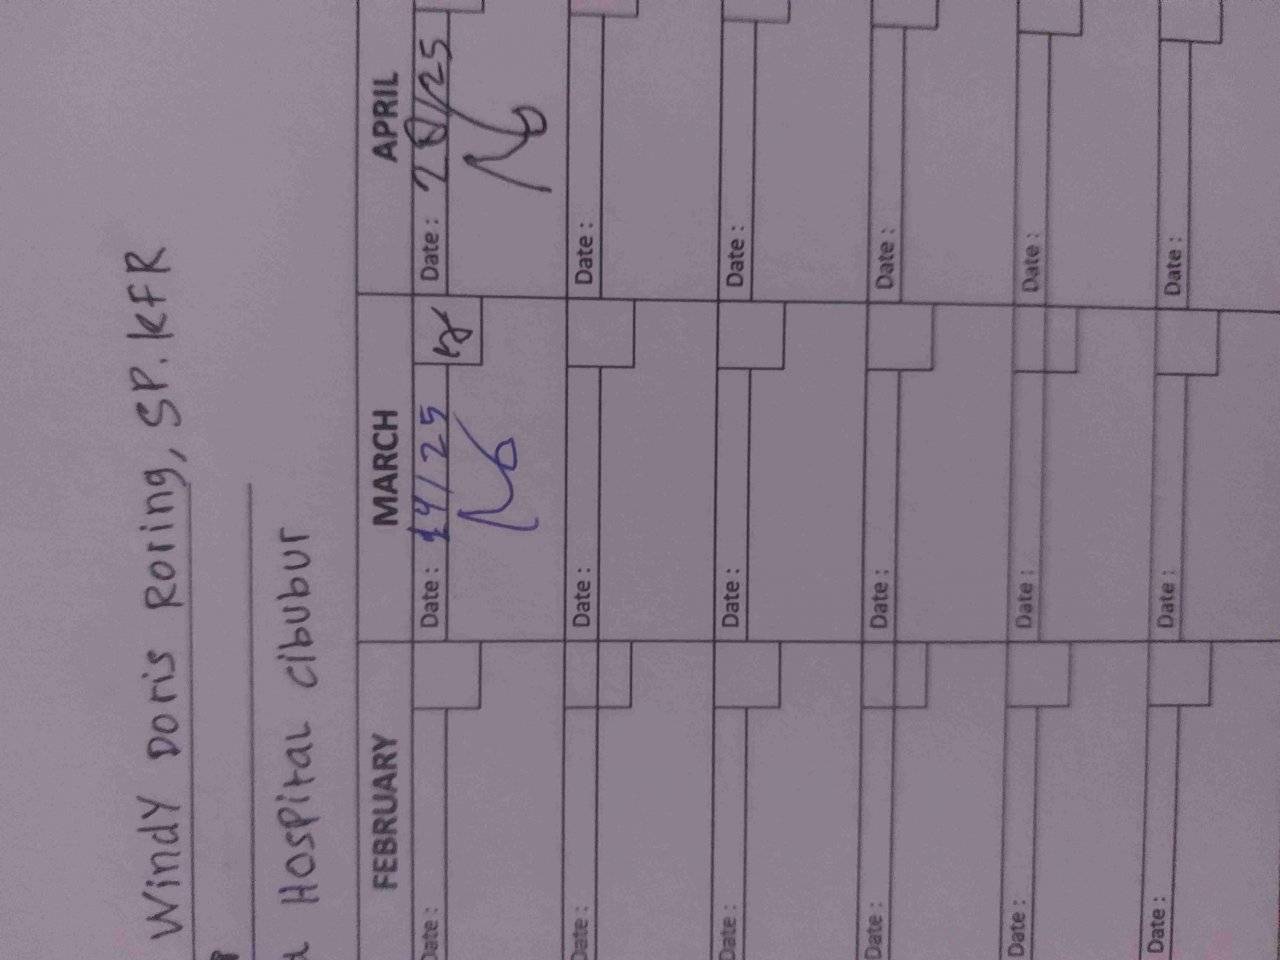 Windy Doris Roring, SP.KFR
Hospital Cibubur
FEBRUARY MARCH APRIL
Date : Date : 14/25 Date :
Date : Date : Date :
Date : Date : Date :
Date : Date : Date :
Date : Date : Date :
Date : Date : Date :